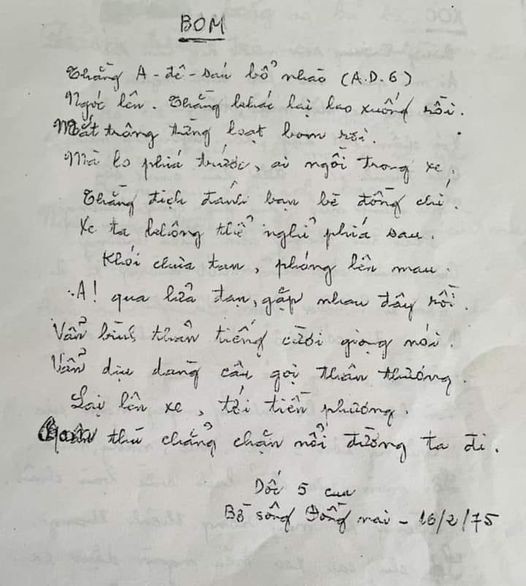 BOM
Thằng A-đê-sáu bổ nhào (A.D.6)
Ngóc lên. Thằng khác lại lao xuống rồi.
Mắt trông từng loạt bom rơi.
Mà lo phía trước, ai ngồi trong xe.
Thằng địch đánh bạn bè đồng chí.
Xe ta không thể nghỉ phía sau.
Khói chưa tan, phóng lên mau.
A! qua lửa đạn, gặp nhau đây rồi.
Vẫn bình thản tiếng cười giọng nói.
Vẫn dịu dàng câu gọi thân thương.
Lại lên xe, tới tiền phương.
thù chẳng chặn nổi đường ta đi.
Dốc 5 cua
Bờ sông Đồng nai - 16/2/75